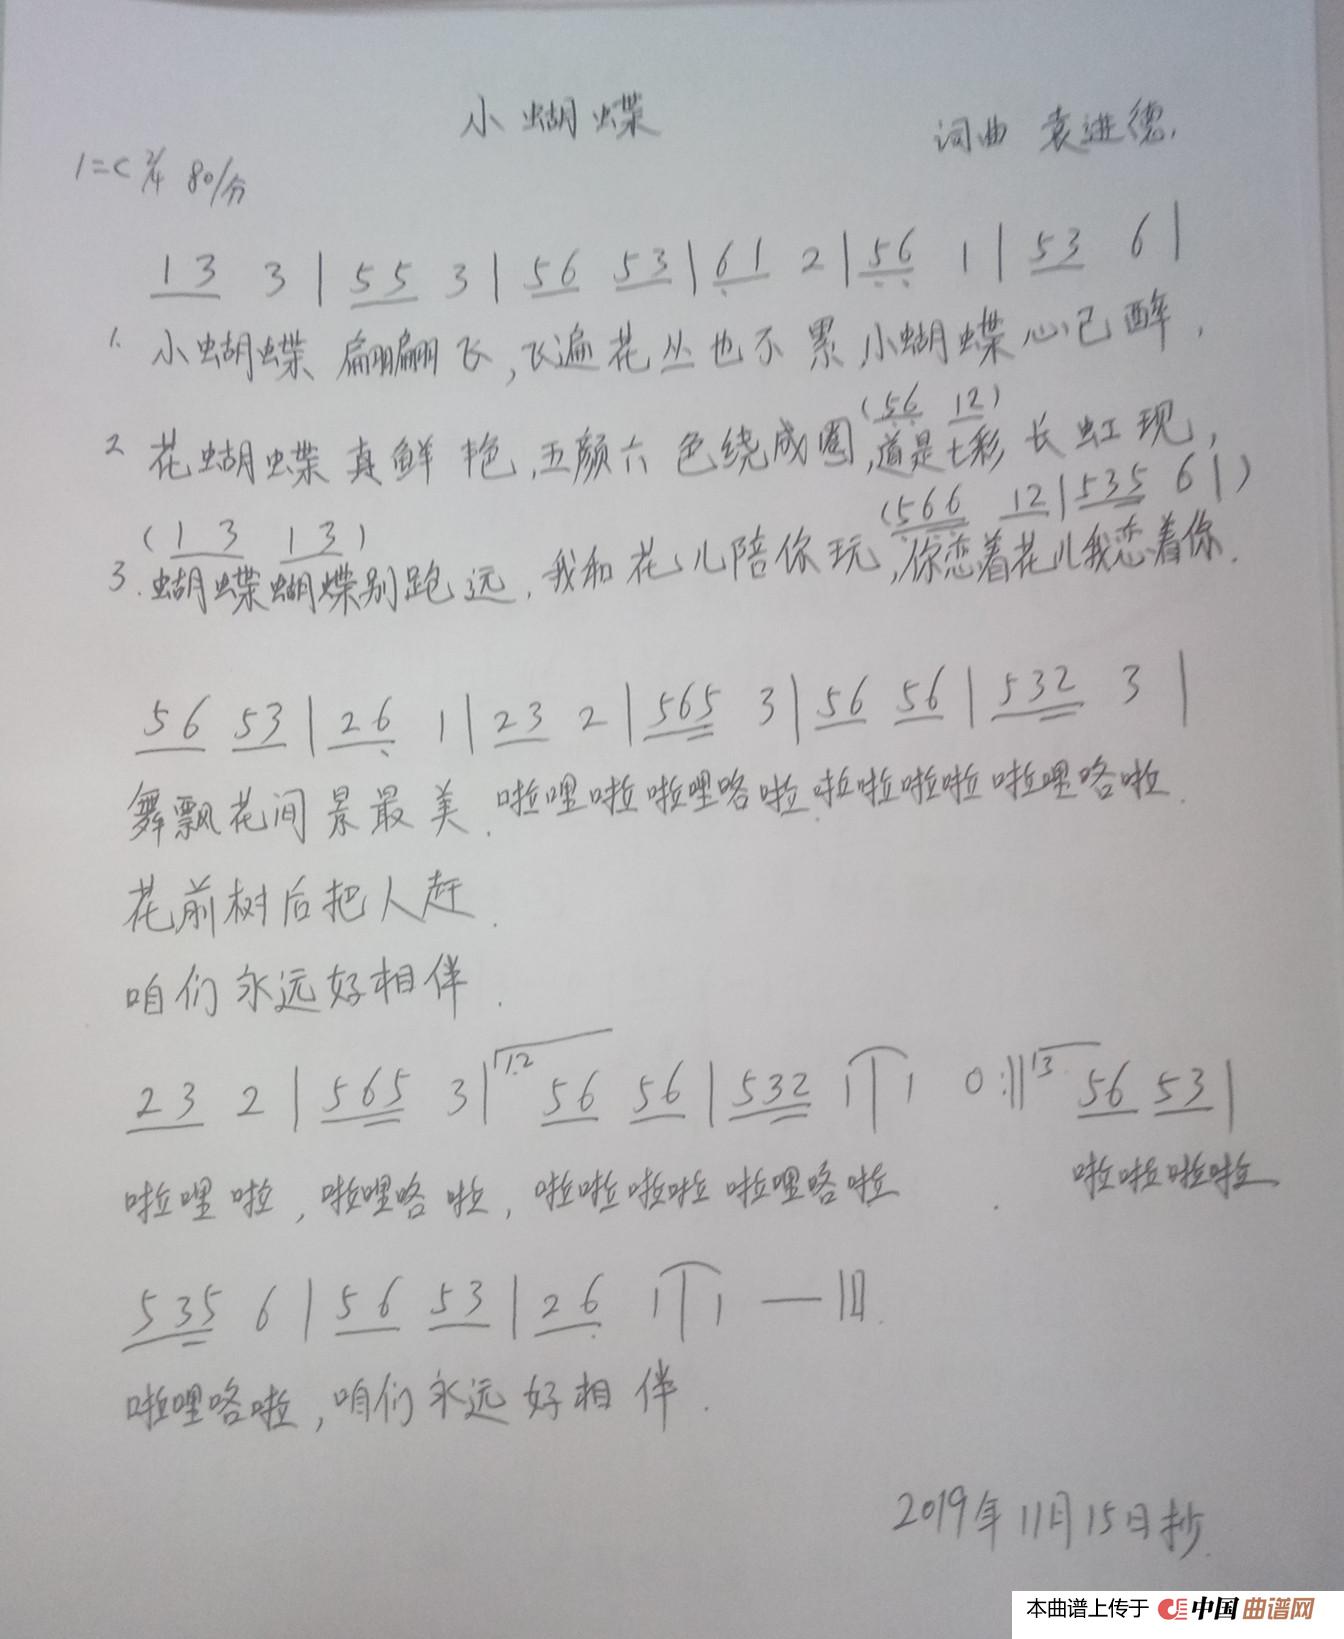 小蝴蝶
词曲 袁进德.
1=C 2/4 80/分
1 3 3 | 5 5 3 | 5 6 5 3 | 6 1 2 | 5 6 1 | 5 3 6 |
1. 小蝴蝶 翩翩飞,飞遍花丛也不累,小蝴蝶心已醉,
(5 6 1 2)
2 花蝴蝶真鲜艳,五颜六色绕成圈,道是七彩长虹现,
(1 3 1 3) (5 6 6 1 2 | 5 3 5 6 |)
3. 蝴蝶蝴蝶别跑远,我和花儿陪你玩,你恋着花儿我恋着你.
5 6 5 3 | 2 6 1 | 2 3 2 | 5 6 5 3 | 5 6 5 6 | 5 3 2 3 |
舞飘花间景最美.啦哩啦啦哩咯啦.啦啦啦啦啦哩咯啦.
花前树后把人赶.
咱们永远好相伴.
2 3 2 | 5 6 5 3 | 1.2 5 6 5 6 | 5 3 2 1 | 1 0 :|| 3 5 6 5 3 |
啦哩啦,啦哩咯啦,啦啦啦啦啦哩咯啦. 啦啦啦啦
5 3 5 6 | 5 6 5 3 | 2 6 1 | 1 — ||.
啦哩咯啦,咱们永远好相伴.
2019年11月15日抄.
本曲谱上传于 中国曲谱网